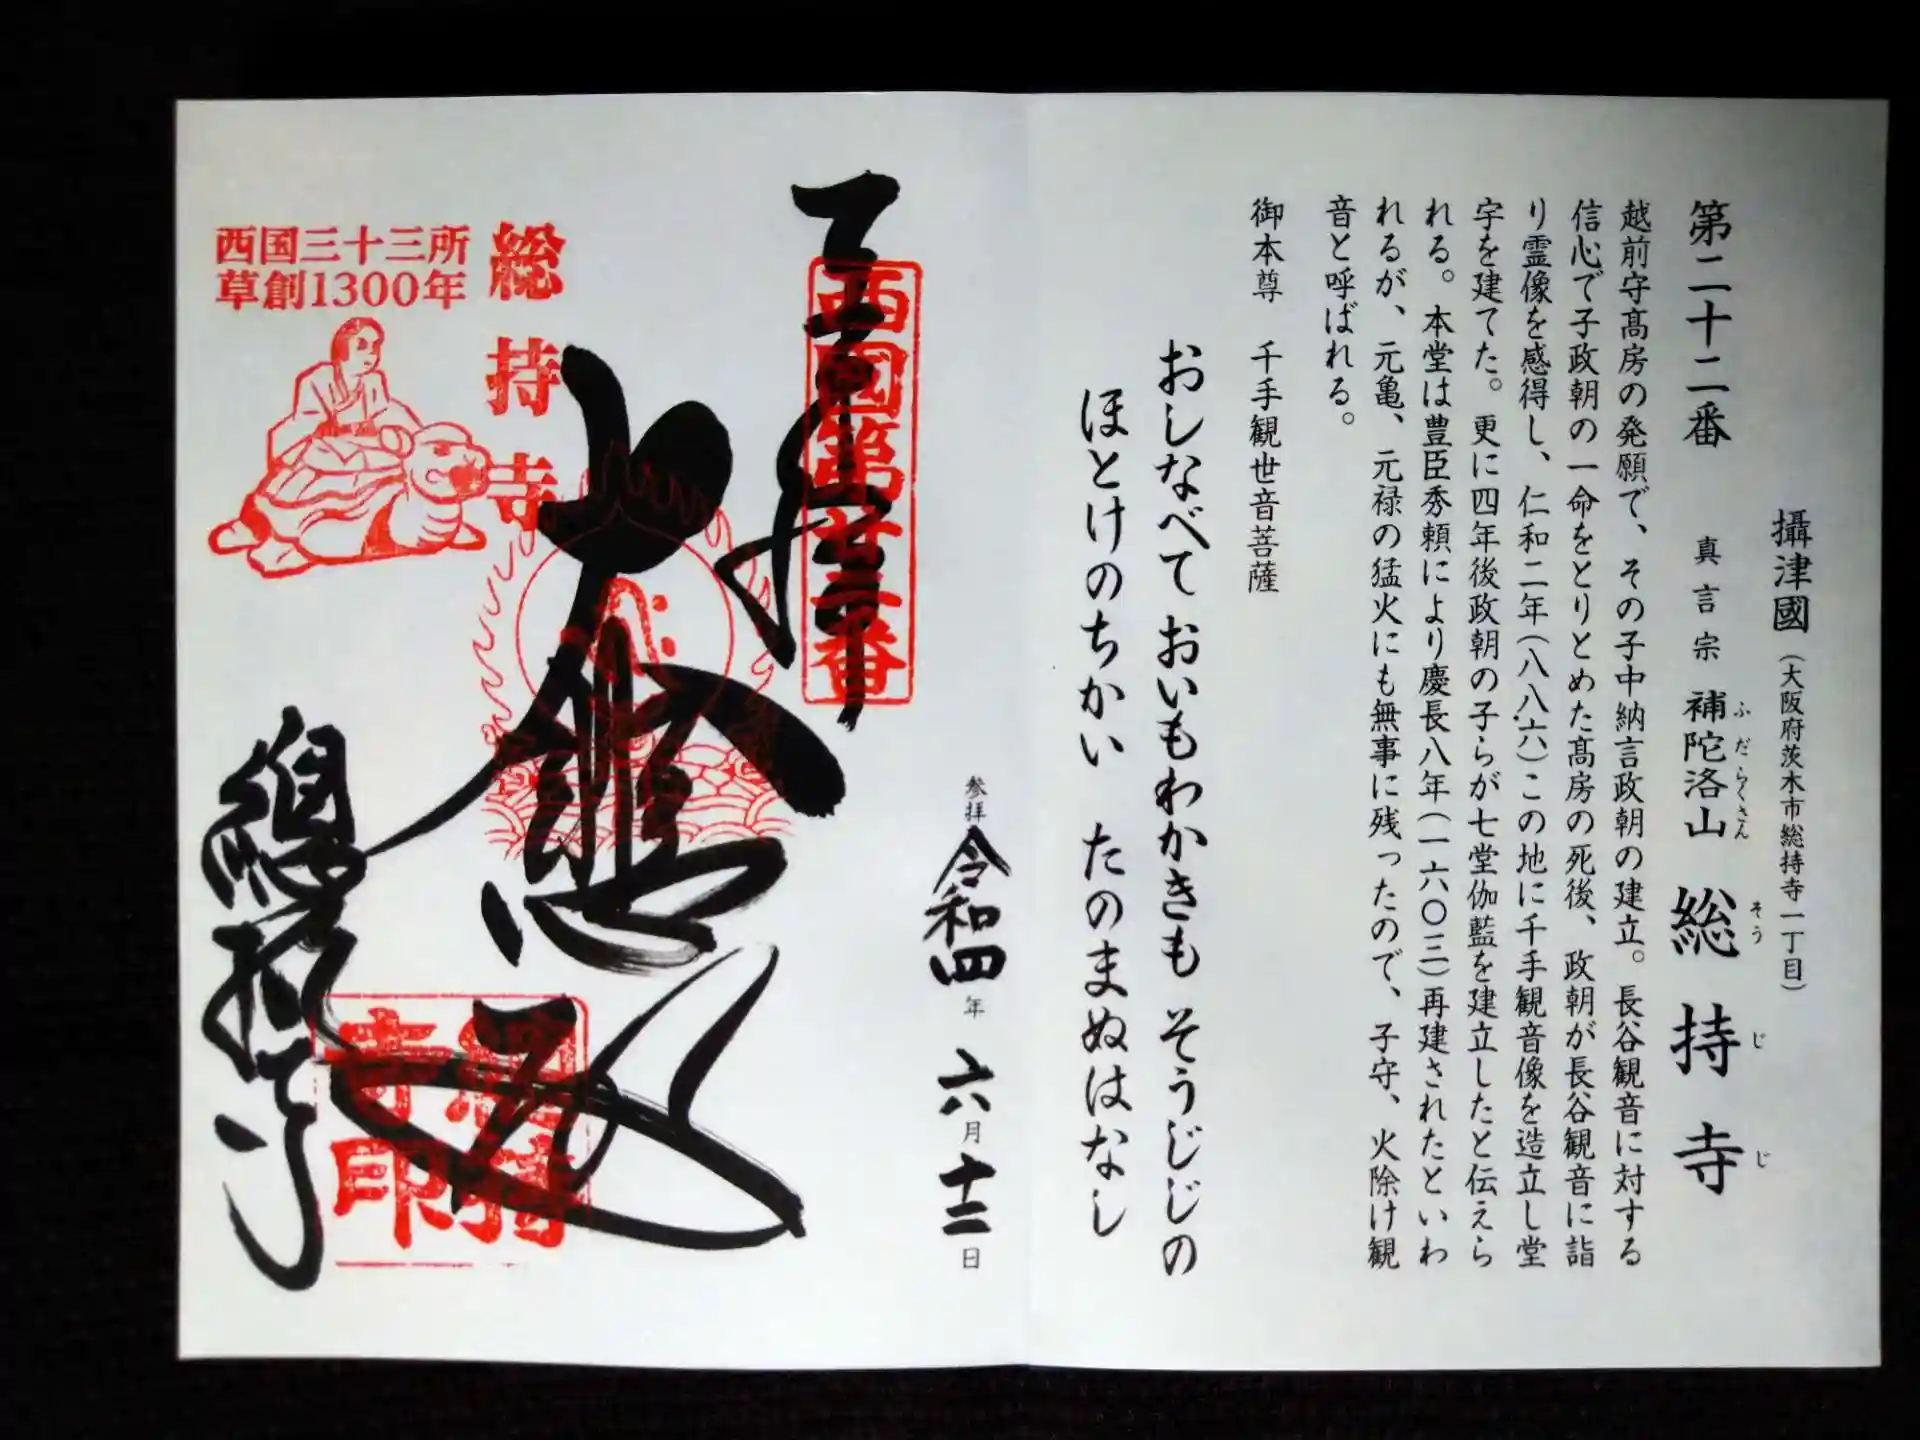 攝津國（大阪府茨木市総持寺一丁目）
第二十二番　真言宗　補陀洛山　総持寺
ふだらくさん　そうじじ
越前守髙房の発願で、その子中納言政朝の建立。長谷観音に対する
信心で子政朝の一命をとりとめた髙房の死後、政朝が長谷観音に詣
り霊像を感得し、仁和二年（八八六）この地に千手観音像を造立し堂
宇を建てた。更に四年後政朝の子らが七堂伽藍を建立したと伝えら
れる。本堂は豊臣秀頼により慶長八年（一六〇三）再建されたといわ
れるが、元亀、元禄の猛火にも無事に残ったので、子守、火除け観
音と呼ばれる。
御本尊　千手観世音菩薩
おしなべて おいもわかきも そうじじの
ほとけのちかい たのまぬはなし
参拝 令和四年 六月十二日
西國第廿二番
大悲殿
総持寺
西国三十三所
草創1300年
總持寺
總持
寺印